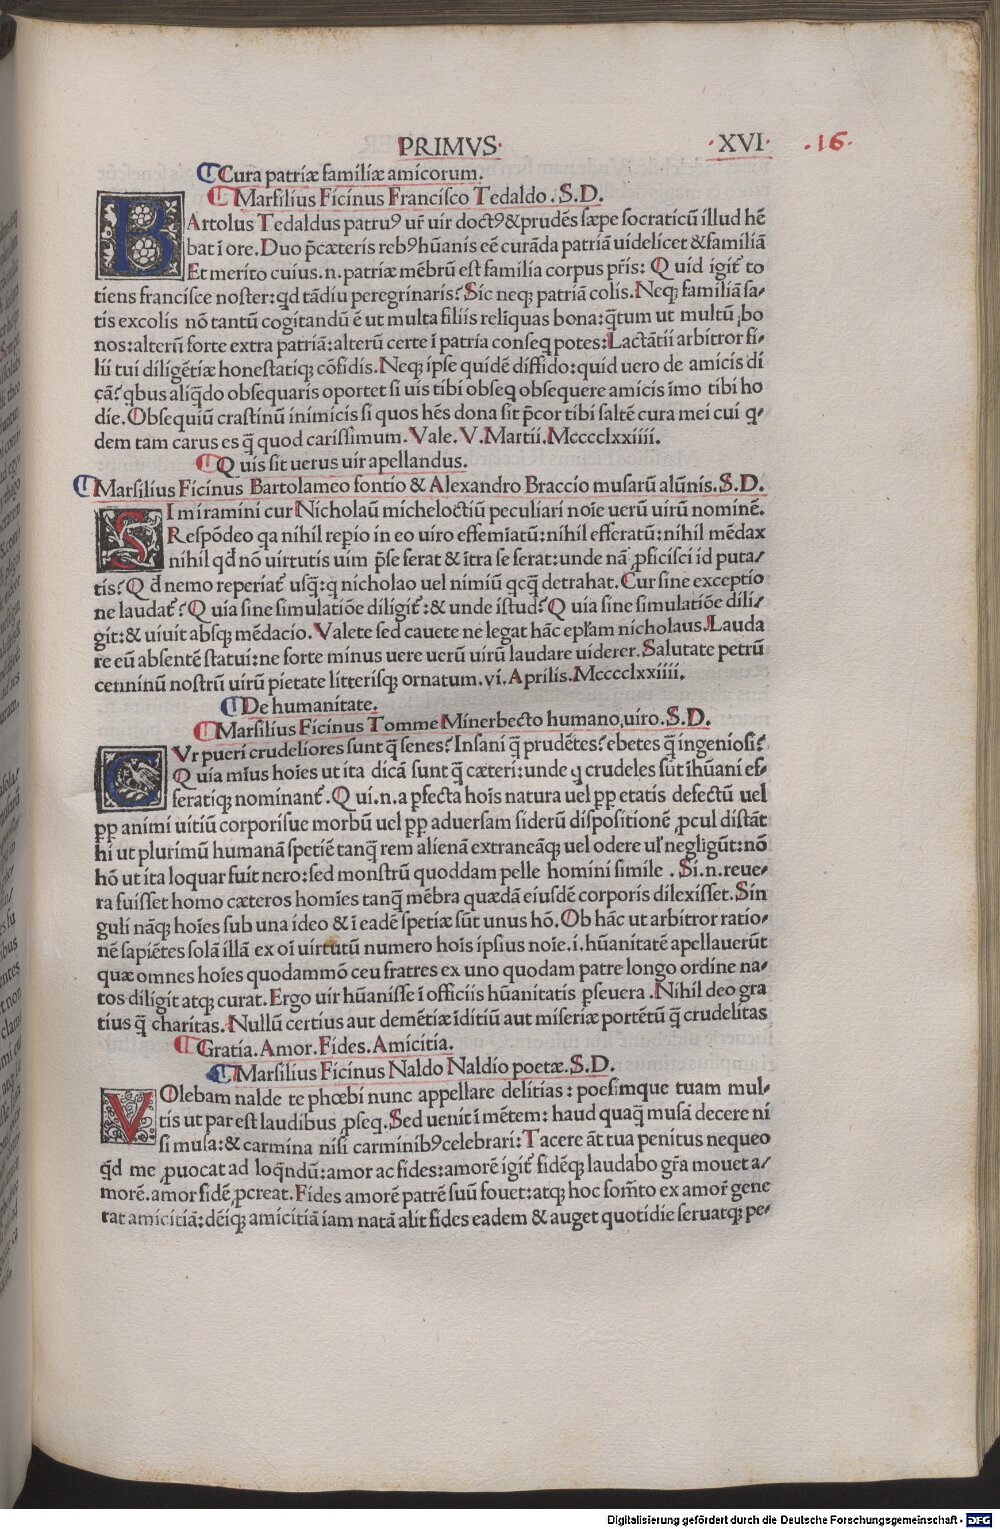 PRIMVS· ·XVI· .16.
Cura patriæ familiæ amicorum.
Marſilius Ficinus Franciſco Tedaldo.S.D.
BArtolus Tedaldus patruꝰ ur̄ uir doctꝰ&prudēs ſæpe ſocraticū illud hē
bat ī ore.Duo p̄cæteris rebꝰhūanis eē curāda patriā uidelicet &familiā
Et merito cuius.n.patriæ mēbrū eſt familia corpus pr̄is: Quid igit̄ to
tiens franciſce noſter:qd tādiu peregrinaris?Sic neqꝫ patriā colis.Neqꝫ familiā ſa⸗
tis excolis nō tantū cogitandū ē ut multa filiis relīquas bona:q̄tum ut multū ꝓbo
nos:alterū forte extra patriā:alterū certe ī patria conſeq̄ potes:Lactātii arbitror fi⸗
lii tui diligētiæ honeſtatiqꝫ cōfidis.Neqꝫ ipſe quidē diffido:quid uero de amicis di
cā?q̄bus aliq̄do obſequaris oportet ſi uis tibi obſeq̄ obſequere amicis īmo tibi ho
die.Obſequiū craſtinū inimicis ſi quos hēs dona ſit p̄cor tibi ſaltē cura mei cui q⸗
dem tam carus es q̄ quod cariſſimum.Vale.V.Martii.Mcccclxxiiii.
Quis ſit uerus uir apellandus.
Marſilius Ficinus Bartolameo fontio & Alexandro Braccio muſarū alūnis.S.D.
SI miramini cur Nicholaū micheloctiū peculiari noīe uerū uirū nominē.
Reſpōdeo qa nihil repio in eo uiro effemiatū:nihil efferatū:nihil mēdax
nihil qd nō uirtutis uim p̄ſe ferat & ītra ſe ferat:unde nā ꝓficiſci id puta⸗
tis?Qd nemo reperiat̄ uſq̄:q nicholao uel nimiū qcq̄ detrahat.Cur ſine exceptio
ne laudat̄?Quia ſine ſimulatiōe diligit̄:& unde iſtud?Quia ſine ſimulatiōe dili⸗
git:& uiuit abſqꝫ mēdacio.Valete ſed cauete ne legat hāc epl̄am nicholaus.Lauda
re eū abſentē ſtatui:ne forte minus uere uerū uirū laudare uiderer.Salutate petrū
cenninū noſtrū uirū pietate litteriſqꝫ ornatum.vi.Aprilis.Mcccclxxiiii.
De humanitate.
Marſilius Ficinus Tomme Minerbecto humano,uiro.S.D.
CVr pueri crudeliores ſunt q̄ ſenes?Inſani q̄ prudētes?ebetes q̄ ingenioſi?
Quia mīus hoīes ut ita dicā ſunt q̄ cæteri:unde q crudeles ſūt īhūani ef⸗
feratiqꝫ nominant̄.Qui.n.a ꝑfecta hoīs natura uel pp etatis defectū uel
pp animi uitiū corporiſue morbū uel pp aduerſam ſiderū diſpoſitionē ꝓcul diſtāt
hi ut plurimū humanā ſpetiē tanq̄ rem alienā extraneāqꝫ uel odere ul̄ negligūt:nō
hō ut ita loquar fuit nero:ſed monſtrū quoddam pelle homini ſimile .Si.n.reue⸗
ra fuiſſet homo cæteros homīes tanq̄ mēbra quædā eiuſdē corporis dilexiſſet.Sin
guli nāqꝫ hoīes ſub una ideo & ī eadē ſpetiæ ſūt unus hō.Ob hāc ut arbitror ratio⸗
nē ſapiētes ſolā illā ex oī uirtutū numero hoīs ipſius noīe.i.hūanitatē apellauerūt
quæ omnes hoīes quodammō ceu fratres ex uno quodam patre longo ordine na⸗
tos diligit atqꝫ curat.Ergo uir hūaniſſe ī officiis hūanitatis ꝑſeuera .Nihil deo gra
tius q̄ charitas.Nullū certius aut demētiæ īditiū aut miſeriæ portētū q̄ crudelitas
Gratia.Amor.Fides.Amicitia.
Marſilius Ficinus Naldo Naldio poetæ.S.D.
VOlebam nalde te phœbi nunc appellare delitias: poeſimque tuam mul⸗
tis ut par eſt laudibus ꝓſeq̄.Sed uenit ī mētem: haud quaq̄ muſā decere ni
ſi muſa:& carmina niſi carminibꝰcelebrari:Tacere āt tua penitus nequeo
q̄d me ꝓuocat ad loq̄ndū:amor ac fides:amorē igit̄ fidēqꝫ laudabo gr̄a mouet a⸗
morē.amor fidē ꝓcreat.Fides amorē patrē ſuū fouet:atqꝫ hoc fom̄to ex amor̄ gene
rat amicitiā:dēiqꝫ amicitiā iam natā alit fides eadem & auget quotidie ſeruatqꝫ pe⸗
Digitalisierung gefördert durch die Deutsche Forschungsgemeinschaft - DFG